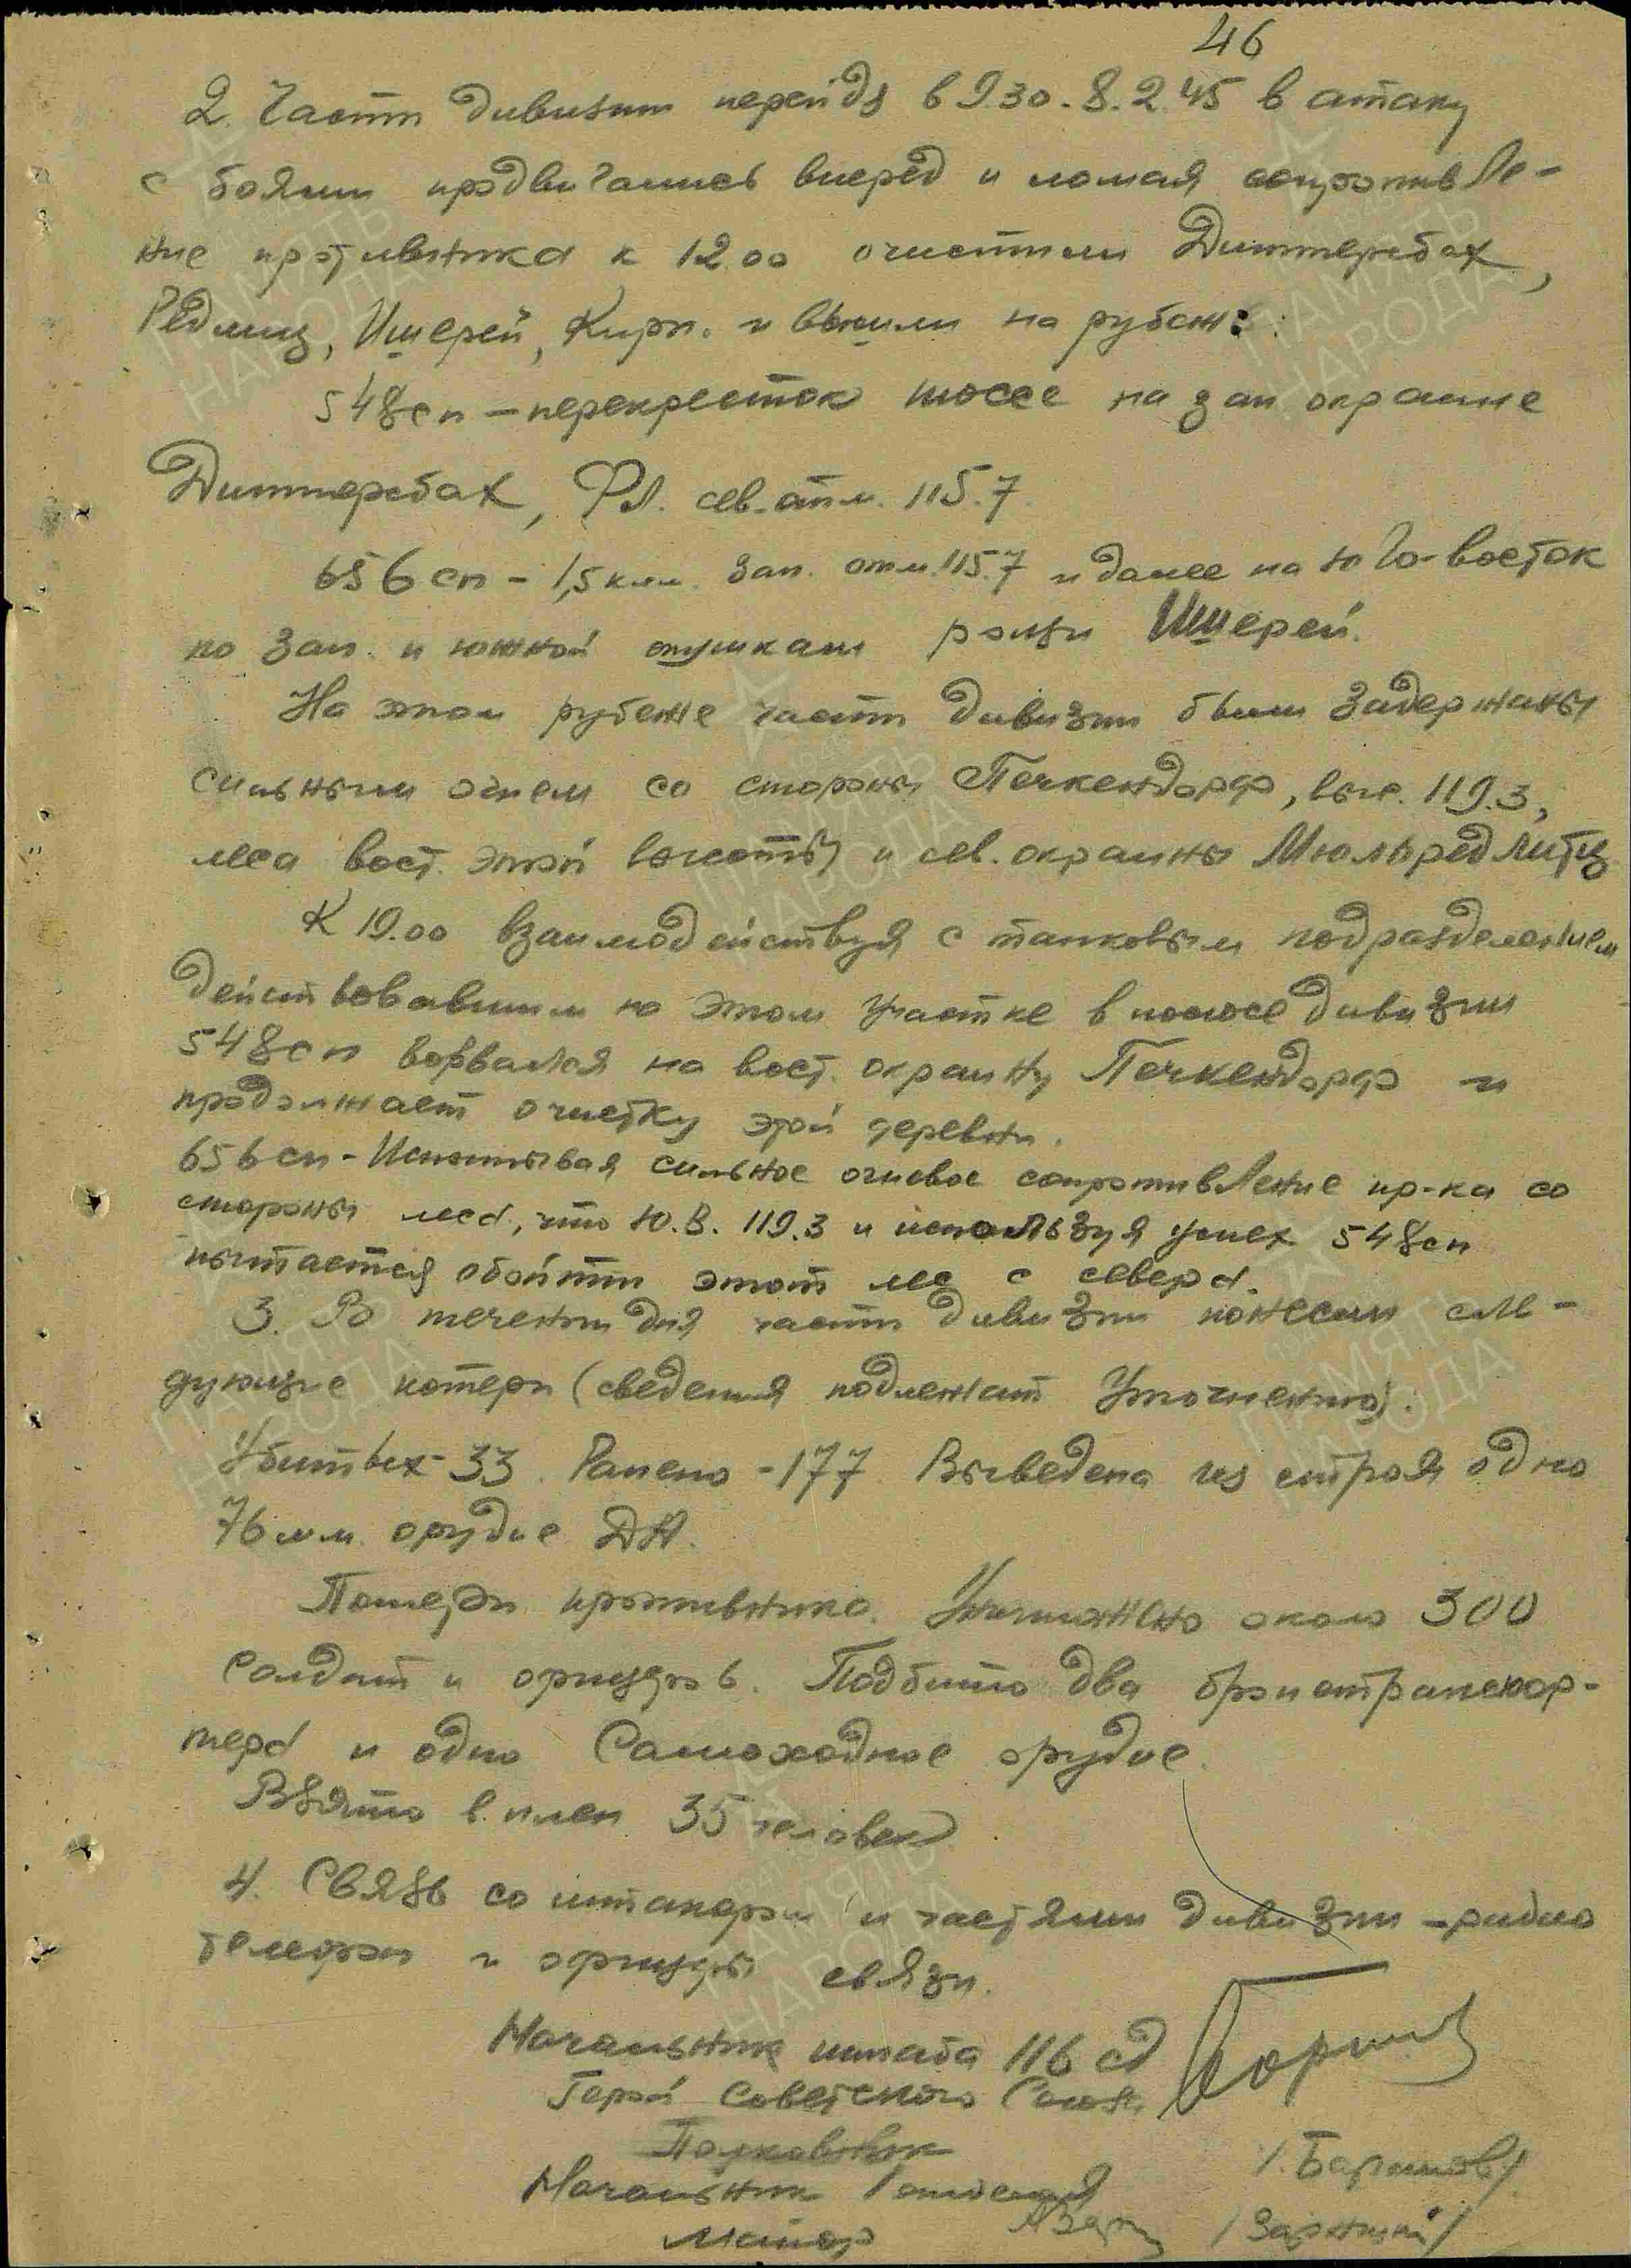 46
2. Части дивизии перейдя в 9.30. 8.2.45 в атаку
с боями продвигались вперёд и ломая сопротивле-
ние противника к 12.00 очистили Диттерсбах,
Редлиц, Ишерей, Кирп. и вышли на рубеж:
548сп – перекресток шоссе на зап окраине
Диттерсбах, Фл. сев. отм. 115.7
656сп – 1,5 клм. зап. отм. 115.7 и далее на юго-восток
по зап. и южной опушкам рощи Ишерей.
На этом рубеже части дивизии были задержаны
сильным огнем со стороны Печкендорф, выс. 119.3,
леса вост. этой высоты и сев. окраины Мюльредлитц
К 19.00 взаимодействуя с танковым подразделением
действовавшим на этом участке в полосе дивизии
548сп ворвался на вост. окраину Печкендорф и
продолжает очистку этой деревни.
656сп – Испытывая сильное огневое сопротивление пр-ка со
стороны леса, что Ю.В. 119.3 и используя успех 548сп
пытается обойти этот лес с севера.
3. В течении дня части дивизии понесли сле-
дующие потери (сведения подлежат уточнению).
Убитых - 33. Ранено - 177. Выведена из строя одно
76 мм. орудие ДА.
Потери противника. Уничтожено около 300
солдат и офицеров. Подбито два бронетранспор-
тера и одно самоходное орудие.
Взято в плен 35 человек
4. Связь со штакором и частями дивизии – радио
телефон и офицеры связи.
Начальник штаба 116 сд
Герой Советского Союза
Полковник /. Баринов/
Начальник
Майор /Зарицкий/
ПАМЯТЬ
НАРОДА